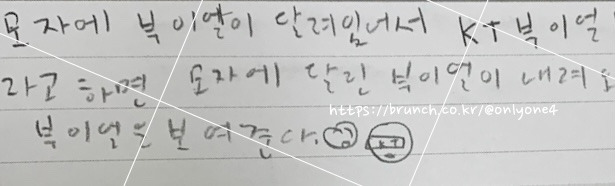 모자에 부이엘이 달려있어서 KT부이얼
라고 하면 모자에 달린 부이얼이 내려오
부이얼은 보여준다.
https://brunch.co.kr/@onlyone4
KT